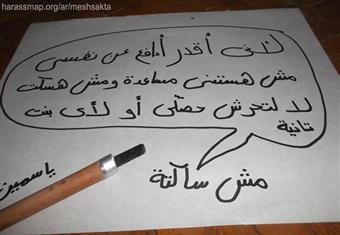 harassmap.org/ar/meshsakta
لانى أقدر أدافع عن نفسى
مش هستنى مساعدة ومش هسكت
لا لتحرش حصلى أو لأى بنت
تانية
مش ساكتة
ياسمين